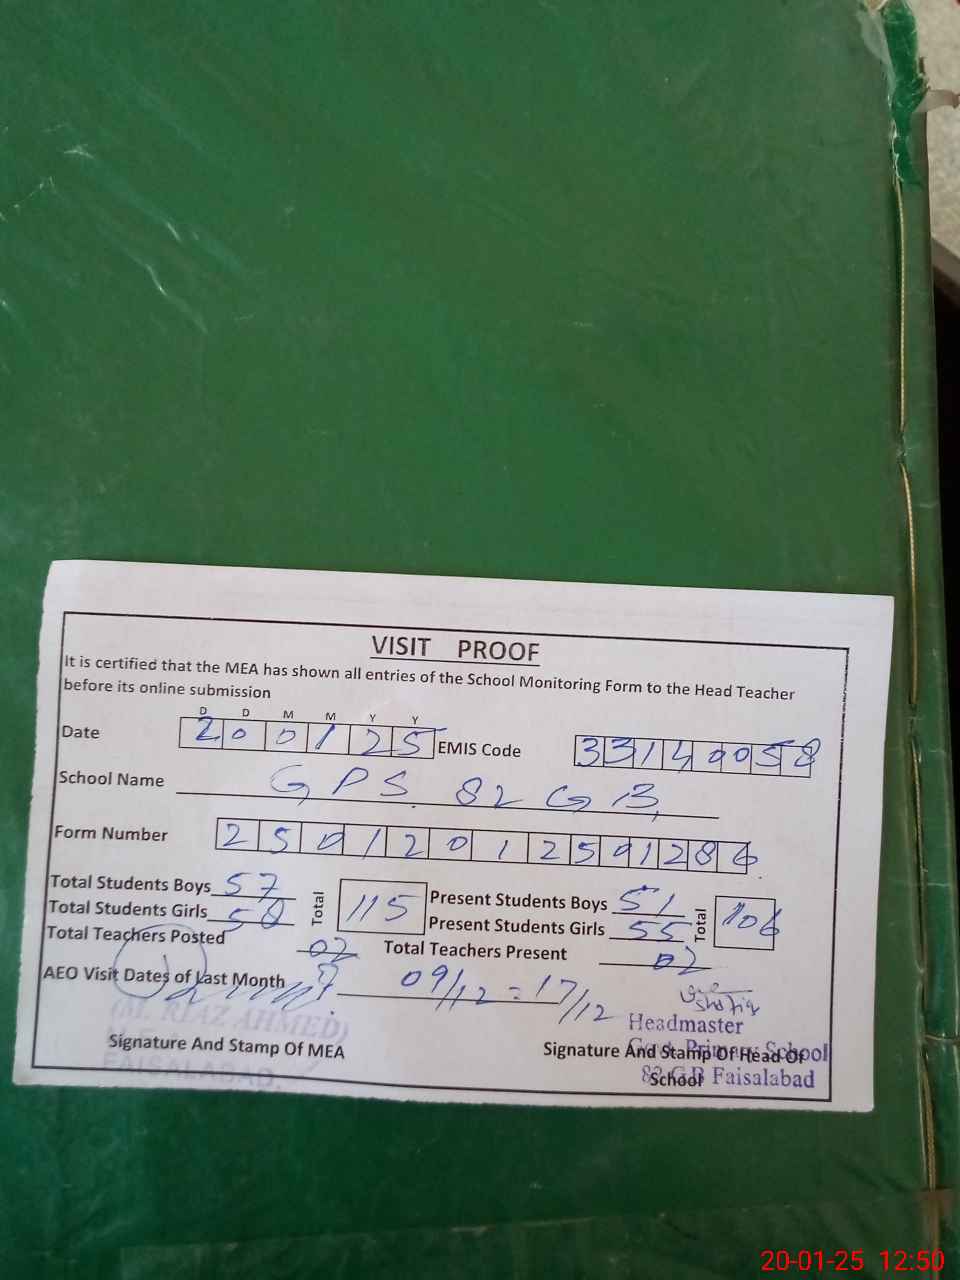 VISIT PROOF
It is certified that the MEA has shown all entries of the School Monitoring Form to the Head Teacher
before its online submission
D D M M Y Y
Date 200125 EMIS Code 33140058
School Name GPS. 82 GB,
Form Number 25012012591286
Total Students Boys 57 Total 115 Present Students Boys 51 Total 106
Total Students Girls 58 Present Students Girls 55
Total Teachers Posted 02 Total Teachers Present 02
AEO Visit Dates of Last Month 09/12 = 17/12
(M. RIAZ AHMED)
FAISALABAD.
Signature And Stamp Of MEA
Headmaster
Govt. Primary School
82 GB Faisalabad
Signature And Stamp Of Head Of
School
20-01-25 12:50